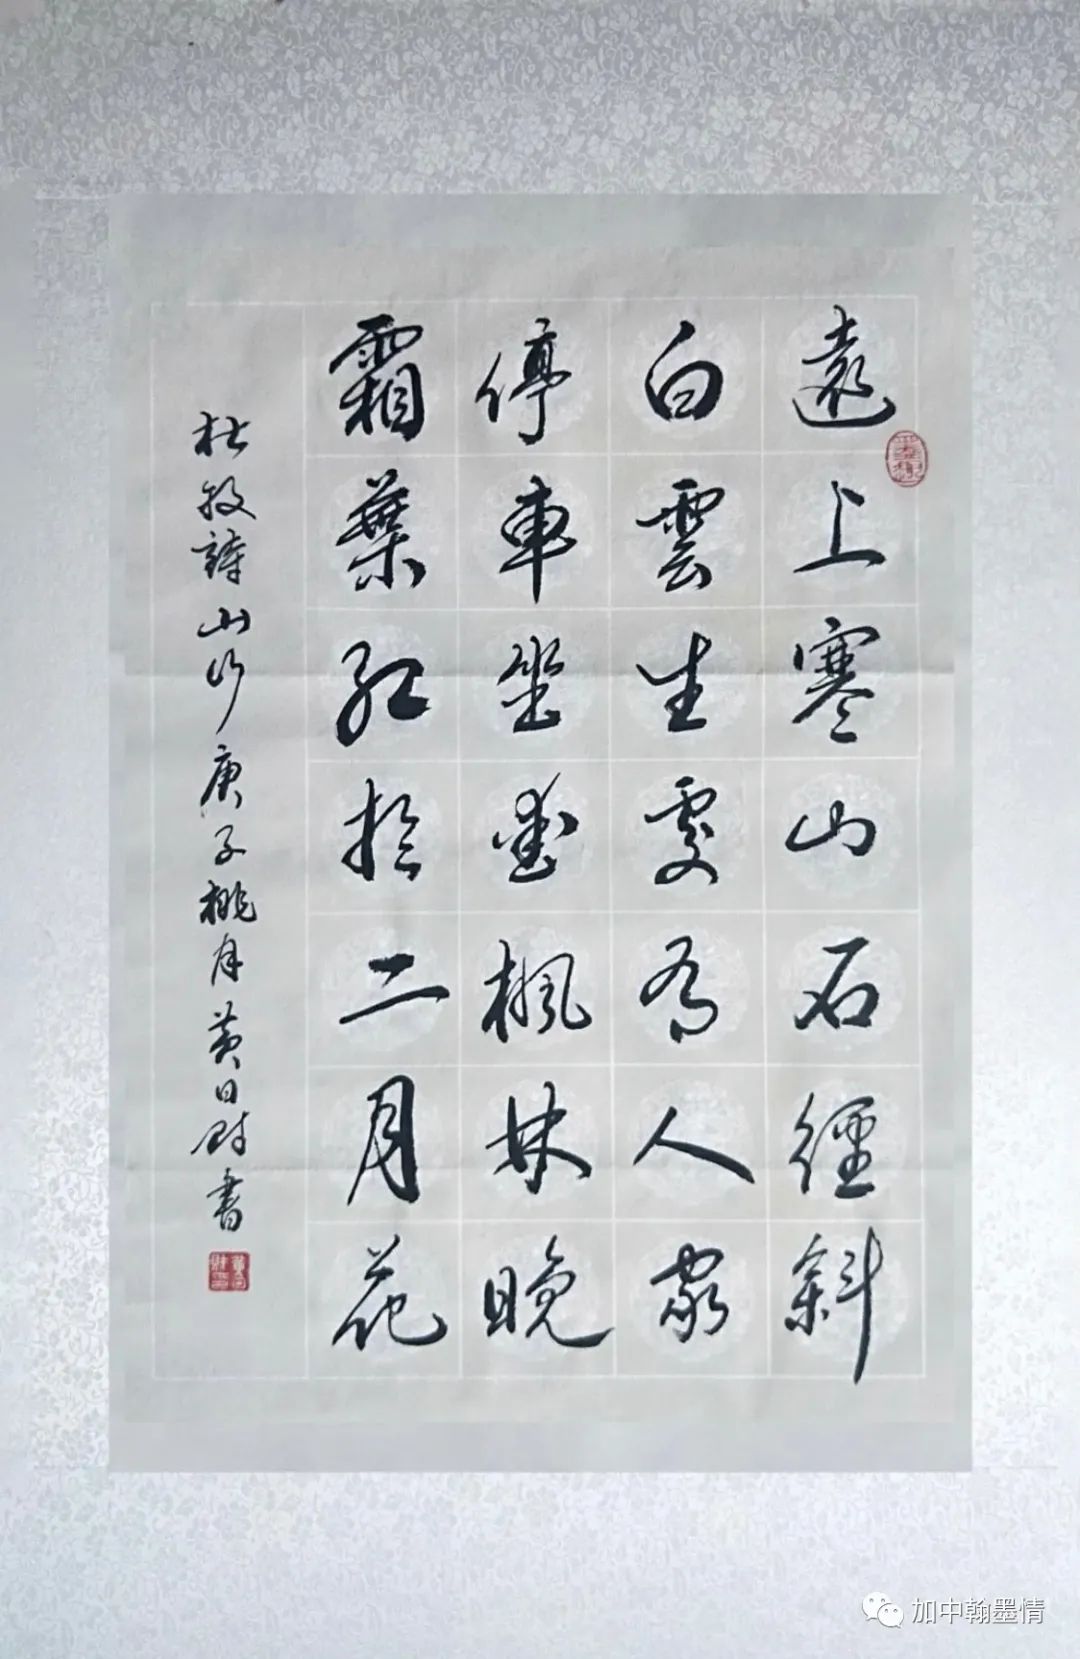 遠上寒山石徑斜
白雲生處有人家
停車坐愛楓林晚
霜葉紅於二月花
杜牧詩山行庚子桃月黄日財書
加中翰墨情